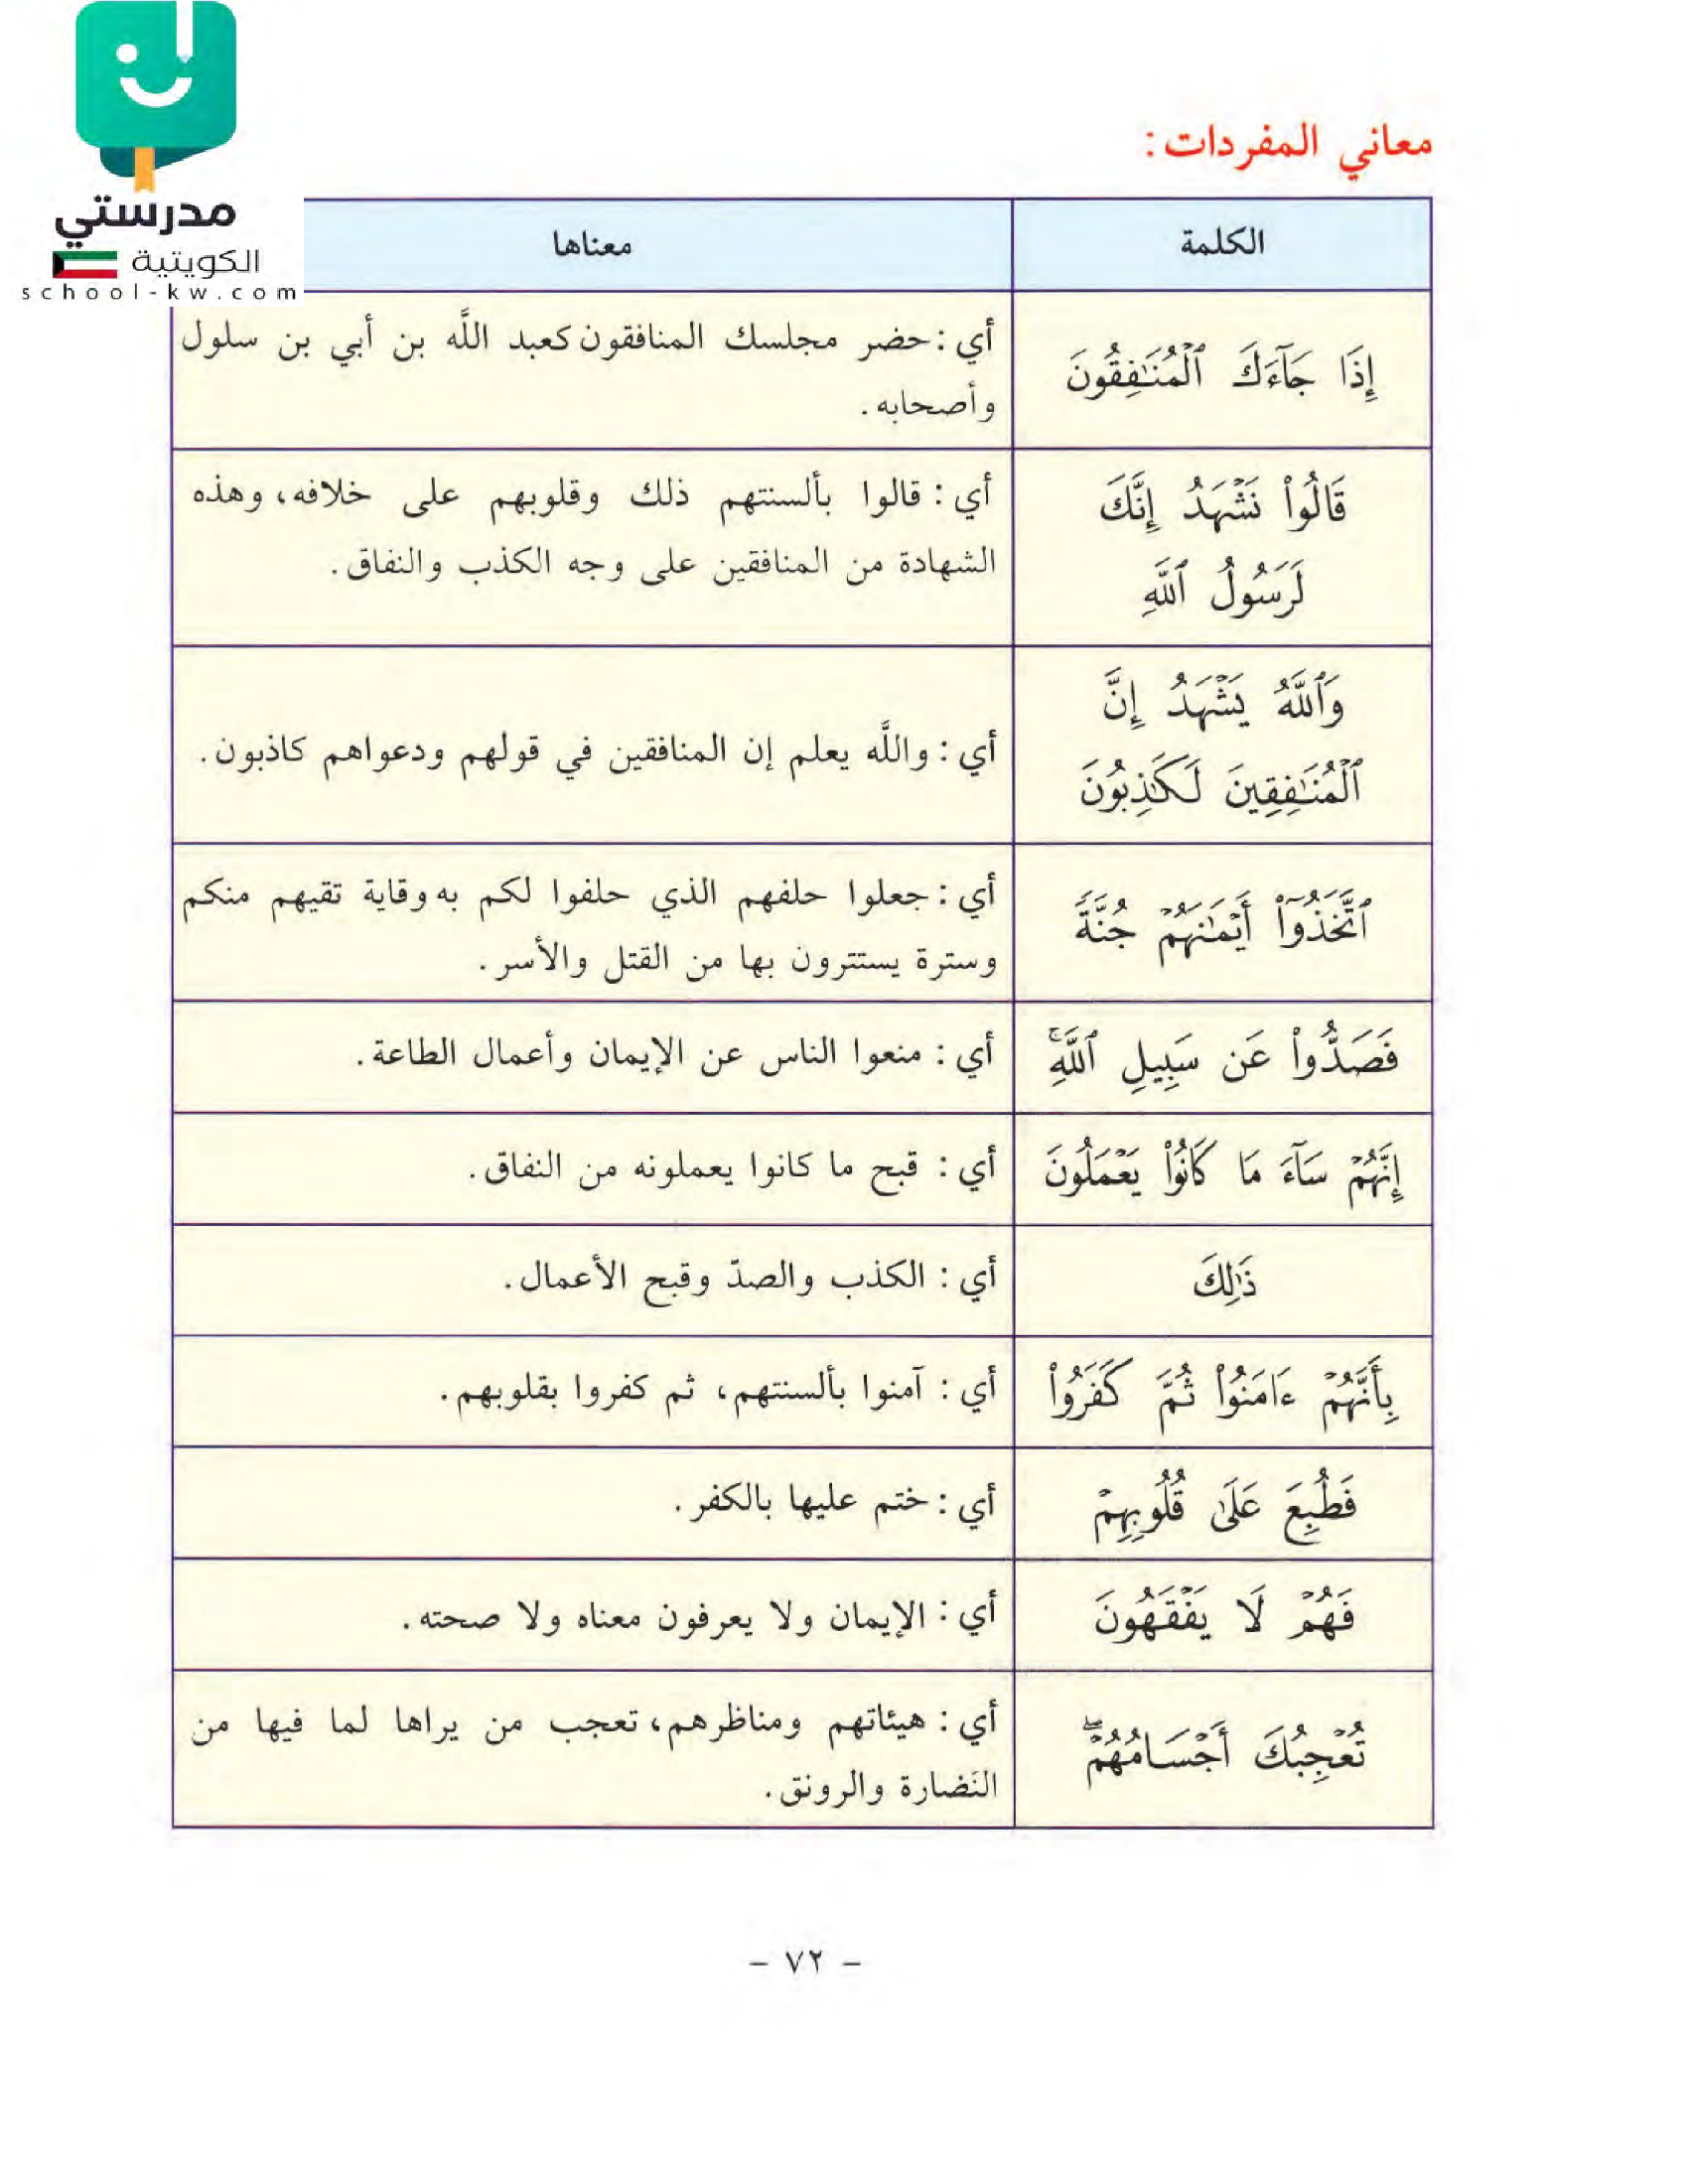 مدرستي
الكويتية
school-kw.com
معاني المفردات :
الكلمة
معناها
إِذَا جَآءَكَ ٱلْمُنَٰفِقُونَ
أي : حضر مجلسك المنافقون كعبد اللَّه بن أبي بن سلول
وأصحابه .
قَالُوا۟ نَشْهَدُ إِنَّكَ
لَرَسُولُ ٱللَّهِ
أي : قالوا بألسنتهم ذلك وقلوبهم على خلافه، وهذه
الشهادة من المنافقين على وجه الكذب والنفاق.
وَٱللَّهُ يَشْهَدُ إِنَّ
ٱلْمُنَٰفِقِينَ لَكَٰذِبُونَ
أي : واللَّه يعلم إن المنافقين في قولهم ودعواهم كاذبون.
ٱتَّخَذُوٓا۟ أَيْمَٰنَهُمْ جُنَّةً
أي : جعلوا حلفهم الذي حلفوا لكم به وقاية تقيهم منكم
وسترة يستترون بها من القتل والأسر.
فَصَدُّوا۟ عَن سَبِيلِ ٱللَّهِۚ
أي : منعوا الناس عن الإيمان وأعمال الطاعة.
إِنَّهُمْ سَآءَ مَا كَانُوا۟ يَعْمَلُونَ
أي : قبح ما كانوا يعملونه من النفاق.
ذَٰلِكَ
أي : الكذب والصدّ وقبح الأعمال.
بِأَنَّهُمْ ءَامَنُوا۟ ثُمَّ كَفَرُوا۟
أي : آمنوا بألسنتهم، ثم كفروا بقلوبهم.
فَطُبِعَ عَلَىٰ قُلُوبِهِمْ
أي : ختم عليها بالكفر.
فَهُمْ لَا يَفْقَهُونَ
أي : الإيمان ولا يعرفون معناه ولا صحته.
تُعْجِبُكَ أَجْسَامُهُمْۖ
أي : هيئاتهم ومناظرهم، تعجب من يراها لما فيها من
النَضارة والرونق.
- ٧٢ -